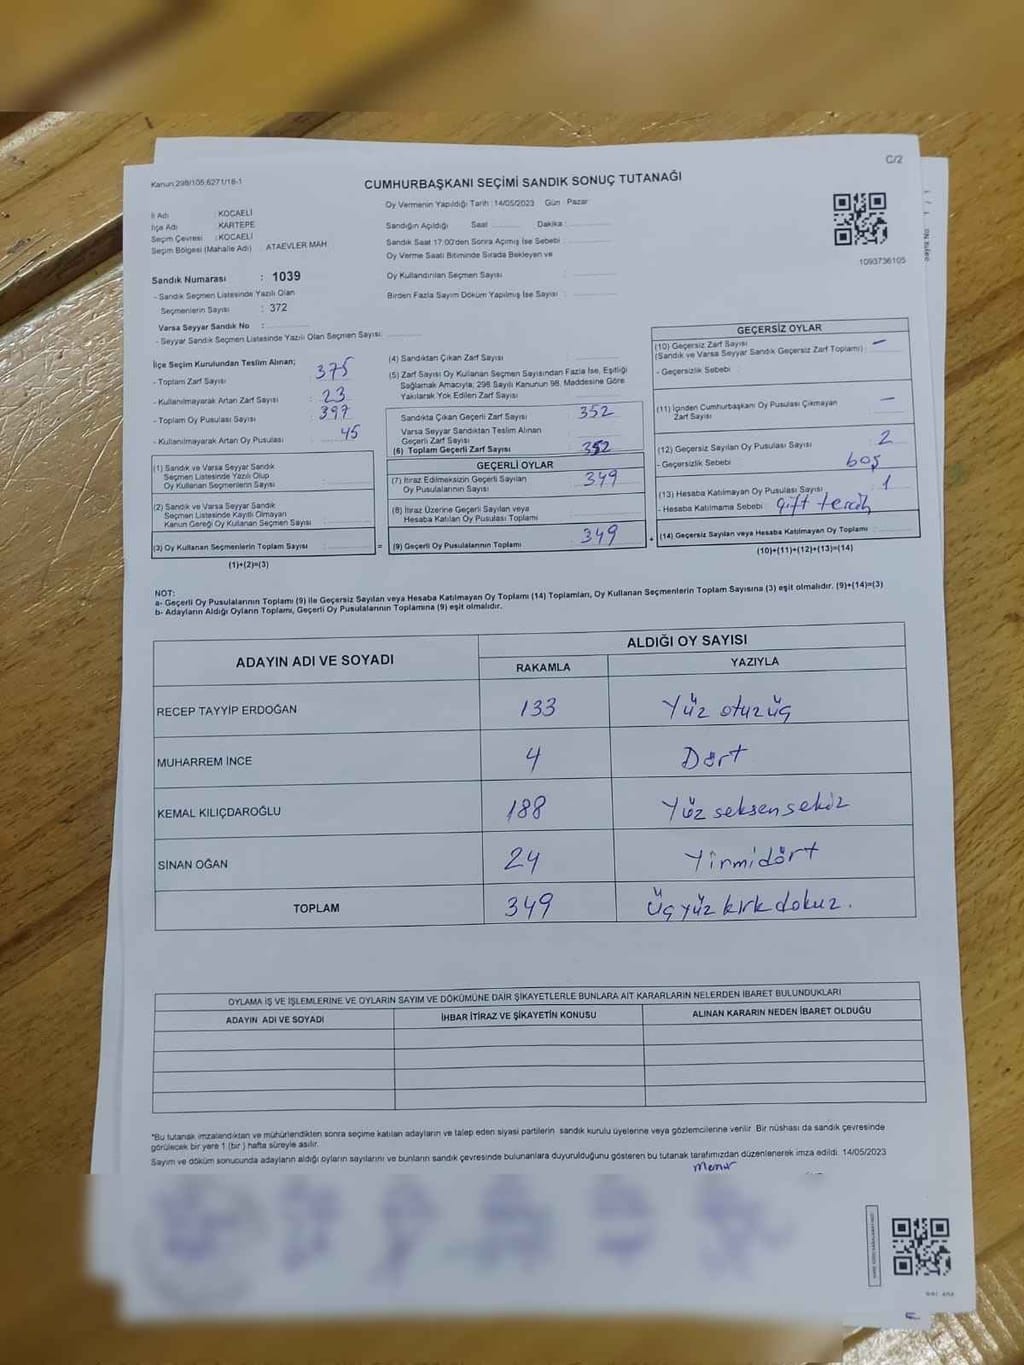 C/2
Kanun 298/105,6271/18-1
CUMHURBAŞKANI SEÇİMİ SANDIK SONUÇ TUTANAĞI
İl Adı : KOCAELİ
İlçe Adı : KARTEPE
Seçim Çevresi : KOCAELİ
Seçim Bölgesi (Mahalle Adı) : ATAEVLER MAH
Oy Vermenin Yapıldığı Tarih : 14/05/2023 Gün : Pazar
Sandığın Açıldığı Saat Dakika :
Sandık Saat 17:00'den Sonra Açılmış İse Sebebi :
Oy Verme Saati Bitiminde Sırada Bekleyen ve
Oy Kullandırılan Seçmen Sayısı :
Birden Fazla Sayım Döküm Yapılmış İse Sayısı :
1093736105
Sandık Numarası : 1039
- Sandık Seçmen Listesinde Yazılı Olan
Seçmenlerin Sayısı : 372
Varsa Seyyar Sandık No :
- Seyyar Sandık Seçmen Listesinde Yazılı Olan Seçmen Sayısı:
İlçe Seçim Kurulundan Teslim Alınan;
- Toplam Zarf Sayısı : 375
- Kullanılmayarak Artan Zarf Sayısı : 23
- Toplam Oy Pusulası Sayısı : 397
- Kullanılmayarak Artan Oy Pusulası : 45
(1) Sandık ve Varsa Seyyar Sandık
Seçmen Listesinde Yazılı Olup
Oy Kullanan Seçmenlerin Sayısı :
(2) Sandık ve Varsa Seyyar Sandık
Seçmen Listesinde Kayıtlı Olmayan
Kanun Gereği Oy Kullanan Seçmen Sayısı :
(3) Oy Kullanan Seçmenlerin Toplam Sayısı :
(1)+(2)=(3)
(4) Sandıktan Çıkan Zarf Sayısı :
(5) Zarf Sayısı Oy Kullanan Seçmen Sayısından Fazla İse, Eşitliği
Sağlamak Amacıyla, 298 Sayılı Kanunun 98. Maddesine Göre
Yakılarak Yok Edilen Zarf Sayısı :
Sandıkta Çıkan Geçerli Zarf Sayısı : 352
Varsa Seyyar Sandıktan Teslim Alınan
Geçerli Zarf Sayısı :
(6) Toplam Geçerli Zarf Sayısı : 352
GEÇERLİ OYLAR
(7) İtiraz Edilmeksizin Geçerli Sayılan
Oy Pusulalarının Sayısı : 349
(8) İtiraz Üzerine Geçerli Sayılan veya
Hesaba Katılan Oy Pusulası Toplamı :
(9) Geçerli Oy Pusulalarının Toplamı : 349
GEÇERSİZ OYLAR
(10) Geçersiz Zarf Sayısı : -
(Sandık ve Varsa Seyyar Sandık Geçersiz Zarf Toplamı)
- Geçersizlik Sebebi :
(11) İçinden Cumhurbaşkanı Oy Pusulası Çıkmayan
Zarf Sayısı : -
(12) Geçersiz Sayılan Oy Pusulası Sayısı : 2
- Geçersizlik Sebebi : boş
(13) Hesaba Katılmayan Oy Pusulası Sayısı : 1
- Hesaba Katılmama Sebebi : çift tercih
(14) Geçersiz Sayılan veya Hesaba Katılmayan Oy Toplamı :
(10)+(11)+(12)+(13)=(14)
NOT:
a- Geçerli Oy Pusulalarının Toplamı (9) ile Geçersiz Sayılan veya Hesaba Katılmayan Oy Toplamı (14) Toplamları, Oy Kullanan Seçmenlerin Toplam Sayısına (3) eşit olmalıdır. (9)+(14)=(3)
b- Adayların Aldığı Oyların Toplamı, Geçerli Oy Pusulalarının Toplamına (9) eşit olmalıdır.
ADAYIN ADI VE SOYADI
ALDIĞI OY SAYISI
RAKAMLA YAZIYLA
RECEP TAYYİP ERDOĞAN 133 Yüz otuzüç
MUHARREM İNCE 4 Dört
KEMAL KILIÇDAROĞLU 188 Yüz seksensekiz
SİNAN OĞAN 24 Yirmidört
TOPLAM 349 Üçyüz kırkdokuz.
OYLAMA İŞ VE İŞLEMLERİNE VE OYLARIN SAYIM VE DÖKÜMÜNE DAİR ŞİKAYETLERLE BUNLARA AİT KARARLARIN NELERDEN İBARET BULUNDUKLARI
ADAYIN ADI VE SOYADI İHBAR İTİRAZ VE ŞİKAYETİN KONUSU ALINAN KARARIN NEDEN İBARET OLDUĞU
*Bu tutanak imzalandıktan ve mühürlendikten sonra seçime katılan adayların ve talep eden siyasi partilerin sandık kurulu üyelerine veya gözlemcilerine verilir. Bir nüshası da sandık çevresinde
görülecek bir yere 1 (bir ) hafta süreyle asılır.
Sayım ve döküm sonucunda adayların aldığı oyların sayılarını ve bunların sandık çevresinde bulunanlara duyurulduğunu gösteren bu tutanak tarafımızdan düzenlenerek imza edildi. 14/05/2023